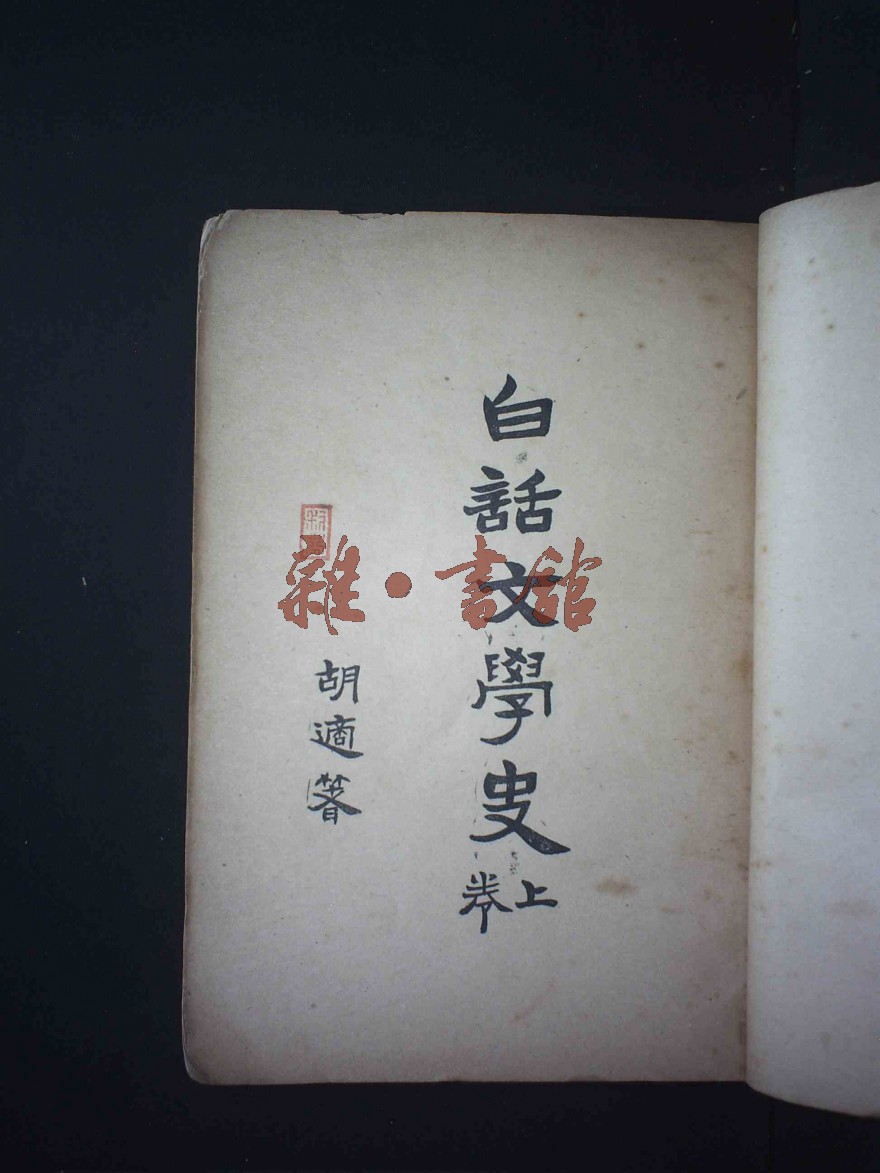 白話文學史
上卷
胡適著
雜·書館